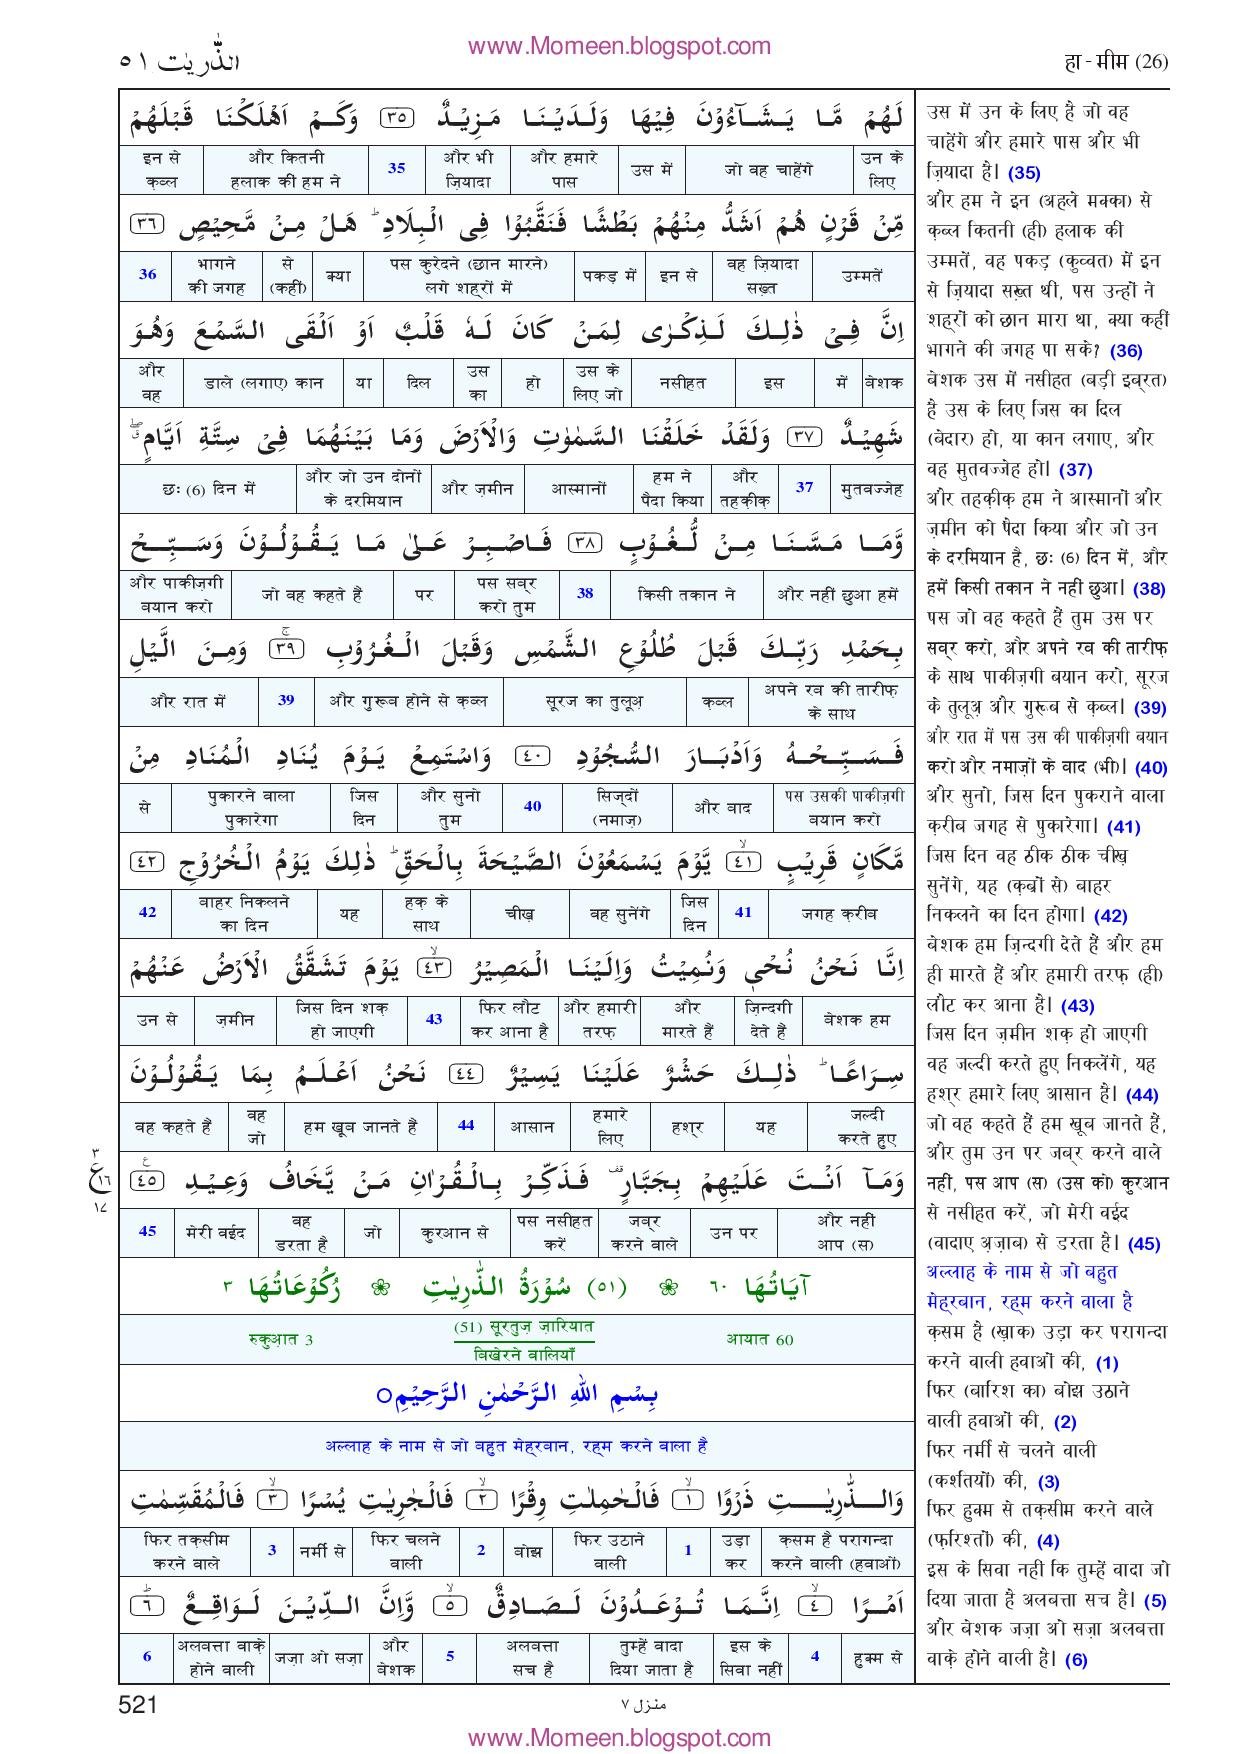 www.Momeen.blogspot.com
الذّٰريٰت ٥١
हा - मीम (26)
لَهُمْ مَّا يَشَآءُوْنَ فِيْهَا وَلَدَيْنَا مَزِيْدٌ ٣٥ وَكَمْ اَهْلَكْنَا قَبْلَهُمْ
उन के लिए | जो वह चाहेंगे | उस में | और हमारे पास | और भी ज़ियादा | 35 | और कितनी हलाक कीं हम ने | इन से क़ब्ल
مِّنْ قَرْنٍ هُمْ اَشَدُّ مِنْهُمْ بَطْشًا فَنَقَّبُوْا فِى الْبِلَادِ ؕ هَلْ مِنْ مَّحِيْصٍ ٣٦
उम्मतें | वह ज़ियादा सख़्त | इन से | पकड़ में | पस कुरेदने (छान मारने) लगे शह्रों में | क्या | से (कहीं) | भागने की जगह | 36
اِنَّ فِىْ ذٰلِكَ لَذِكْرٰى لِمَنْ كَانَ لَهٗ قَلْبٌ اَوْ اَلْقَى السَّمْعَ وَهُوَ
बेशक | में | इस | नसीहत | उस के लिए जो | हो | उस का | दिल | या | डाले (लगाए) कान | और वह
شَهِيْدٌ ٣٧ وَلَقَدْ خَلَقْنَا السَّمٰوٰتِ وَالْاَرْضَ وَمَا بَيْنَهُمَا فِىْ سِتَّةِ اَيَّامٍ
मुतवज्जेह | 37 | और तहक़ीक़ | हम ने पैदा किया | आस्मानों | और ज़मीन | और जो उन दोनों के दरमियान | छः (6) दिन में
وَّمَا مَسَّنَا مِنْ لُّغُوْبٍ ٣٨ فَاصْبِرْ عَلٰى مَا يَقُوْلُوْنَ وَسَبِّحْ
और नहीं छुआ हमें | किसी तकान ने | 38 | पस सब्र करो तुम | पर | जो वह कहते हैं | और पाकीज़गी बयान करो
بِحَمْدِ رَبِّكَ قَبْلَ طُلُوْعِ الشَّمْسِ وَقَبْلَ الْغُرُوْبِ ٣٩ وَمِنَ الَّيْلِ
अपने रब की तारीफ़ के साथ | क़ब्ल | सूरज का तुलूअ़ | और गुरूब होने से क़ब्ल | 39 | और रात में
فَسَبِّحْهُ وَاَدْبَارَ السُّجُوْدِ ٤٠ وَاسْتَمِعْ يَوْمَ يُنَادِ الْمُنَادِ مِنْ
पस उसकी पाकीज़गी बयान करो | और बाद | सिज्दों (नमाज़) | 40 | और सुनो तुम | जिस दिन | पुकारने वाला पुकारेगा | से
مَّكَانٍ قَرِيْبٍ ٤١ يَّوْمَ يَسْمَعُوْنَ الصَّيْحَةَ بِالْحَقِّ ؕ ذٰلِكَ يَوْمُ الْخُرُوْجِ ٤٢
जगह क़रीब | 41 | जिस दिन | वह सुनेंगे | चीख़ | हक़ के साथ | यह | बाहर निकलने का दिन | 42
اِنَّا نَحْنُ نُحْىٖ وَنُمِيْتُ وَاِلَيْنَا الْمَصِيْرُ ٤٣ يَوْمَ تَشَقَّقُ الْاَرْضُ عَنْهُمْ
बेशक हम | ज़िन्दगी देते हैं | और मारते हैं | और हमारी तरफ़ | फिर लौट कर आना है | 43 | जिस दिन शक़ हो जाएगी | ज़मीन | उन से
سِرَاعًا ؕ ذٰلِكَ حَشْرٌ عَلَيْنَا يَسِيْرٌ ٤٤ نَحْنُ اَعْلَمُ بِمَا يَقُوْلُوْنَ
जल्दी करते हुए | यह | हश्र | हमारे लिए | आसान | 44 | हम खूब जानते हैं | वह जो | वह कहते हैं
وَمَآ اَنْتَ عَلَيْهِمْ بِجَبَّارٍ فَذَكِّرْ بِالْقُرْاٰنِ مَنْ يَّخَافُ وَعِيْدِ ٤٥
٣ ع ١٦ ١٧
और नहीं आप (स) | उन पर | जब्र करने वाले | पस नसीहत करें | कुरआन से | जो | वह डरता है | मेरी वईद | 45
آيَاتُهَا ٦٠ ❀ (٥١) سُوْرَةُ الذّٰرِيٰتِ ❀ رُكُوْعَاتُهَا ٣
आयात 60 | (51) सूरतुज़ ज़ारियात बिखेरने वालियाँ | रुकुआ़त 3
بِسْمِ اللهِ الرَّحْمٰنِ الرَّحِيْمِ ○
अल्लाह के नाम से जो बहुत मेह्रबान, रह्म करने वाला है
وَالذّٰرِيٰتِ ذَرْوًا ١ فَالْحٰمِلٰتِ وِقْرًا ٢ فَالْجٰرِيٰتِ يُسْرًا ٣ فَالْمُقَسِّمٰتِ
क़सम है परागन्दा करने वाली (हवाओं) | उड़ा कर | 1 | फिर उठाने वाली | बोझ | 2 | फिर चलने वाली | नर्मी से | 3 | फिर तक़सीम करने वाले
اَمْرًا ٤ اِنَّمَا تُوْعَدُوْنَ لَصَادِقٌ ٥ وَّاِنَّ الدِّيْنَ لَوَاقِعٌ ٦
हुक्म से | 4 | इस के सिवा नहीं | तुम्हें वादा दिया जाता है | अलबत्ता सच है | 5 | और बेशक | जज़ा ओ सज़ा | अलबत्ता वाक़े होने वाली | 6
उस में उन के लिए है जो वह
चाहेंगे और हमारे पास और भी
ज़ियादा है। (35)
और हम ने इन (अहले मक्का) से
क़ब्ल कितनी (ही) हलाक कीं
उम्मतें, वह पकड़ (कुव्वत) में इन
से ज़ियादा सख़्त थी, पस उन्हों ने
शह्रों को छान मारा था, क्या कहीं
भागने की जगह पा सके? (36)
बेशक उस में नसीहत (बड़ी इब्रत)
है उस के लिए जिस का दिल
(बेदार) हो, या कान लगाए, और
वह मुतवज्जेह हो। (37)
और तहक़ीक़ हम ने आस्मानों और
ज़मीन को पैदा किया और जो उन
के दरमियान है, छः (6) दिन में, और
हमें किसी तकान ने नहीं छुआ। (38)
पस जो वह कहते हैं तुम उस पर
सब्र करो, और अपने रब की तारीफ़
के साथ पाकीज़गी बयान करो, सूरज
के तुलूअ़ और गुरूब से क़ब्ल। (39)
और रात में पस उस की पाकीज़गी बयान
करो और नमाज़ों के बाद (भी)। (40)
और सुनो, जिस दिन पुकराने वाला
क़रीब जगह से पुकारेगा। (41)
जिस दिन वह ठीक ठीक चीख़
सुनेंगे, यह (क़ब्रों से) बाहर
निकलने का दिन होगा। (42)
बेशक हम ज़िन्दगी देते हैं और हम
ही मारते हैं और हमारी तरफ़ (ही)
लौट कर आना है। (43)
जिस दिन ज़मीन शक़ हो जाएगी
वह जल्दी करते हुए निकलेंगे, यह
हश्र हमारे लिए आसान है। (44)
जो वह कहते हैं हम खूब जानते हैं,
और तुम उन पर जब्र करने वाले
नहीं, पस आप (स) (उस को) कुरआन
से नसीहत करें, जो मेरी वईद
(वादाए अ़ज़ाब) से डरता है। (45)
अल्लाह के नाम से जो बहुत
मेह्रबान, रह्म करने वाला है
क़सम है (ख़ाक) उड़ा कर परागन्दा
करने वाली हवाओं की, (1)
फिर (बारिश का) बोझ उठाने
वाली हवाओं की, (2)
फिर नर्मी से चलने वाली
(कश्तियों) की, (3)
फिर हुक्म से तक़सीम करने वाले
(फ़रिश्तों) की, (4)
इस के सिवा नहीं कि तुम्हें वादा जो
दिया जाता है अलबत्ता सच है। (5)
और बेशक जज़ा ओ सज़ा अलबत्ता
वाक़े होने वाली है। (6)
521
منزل ٧
www.Momeen.blogspot.com